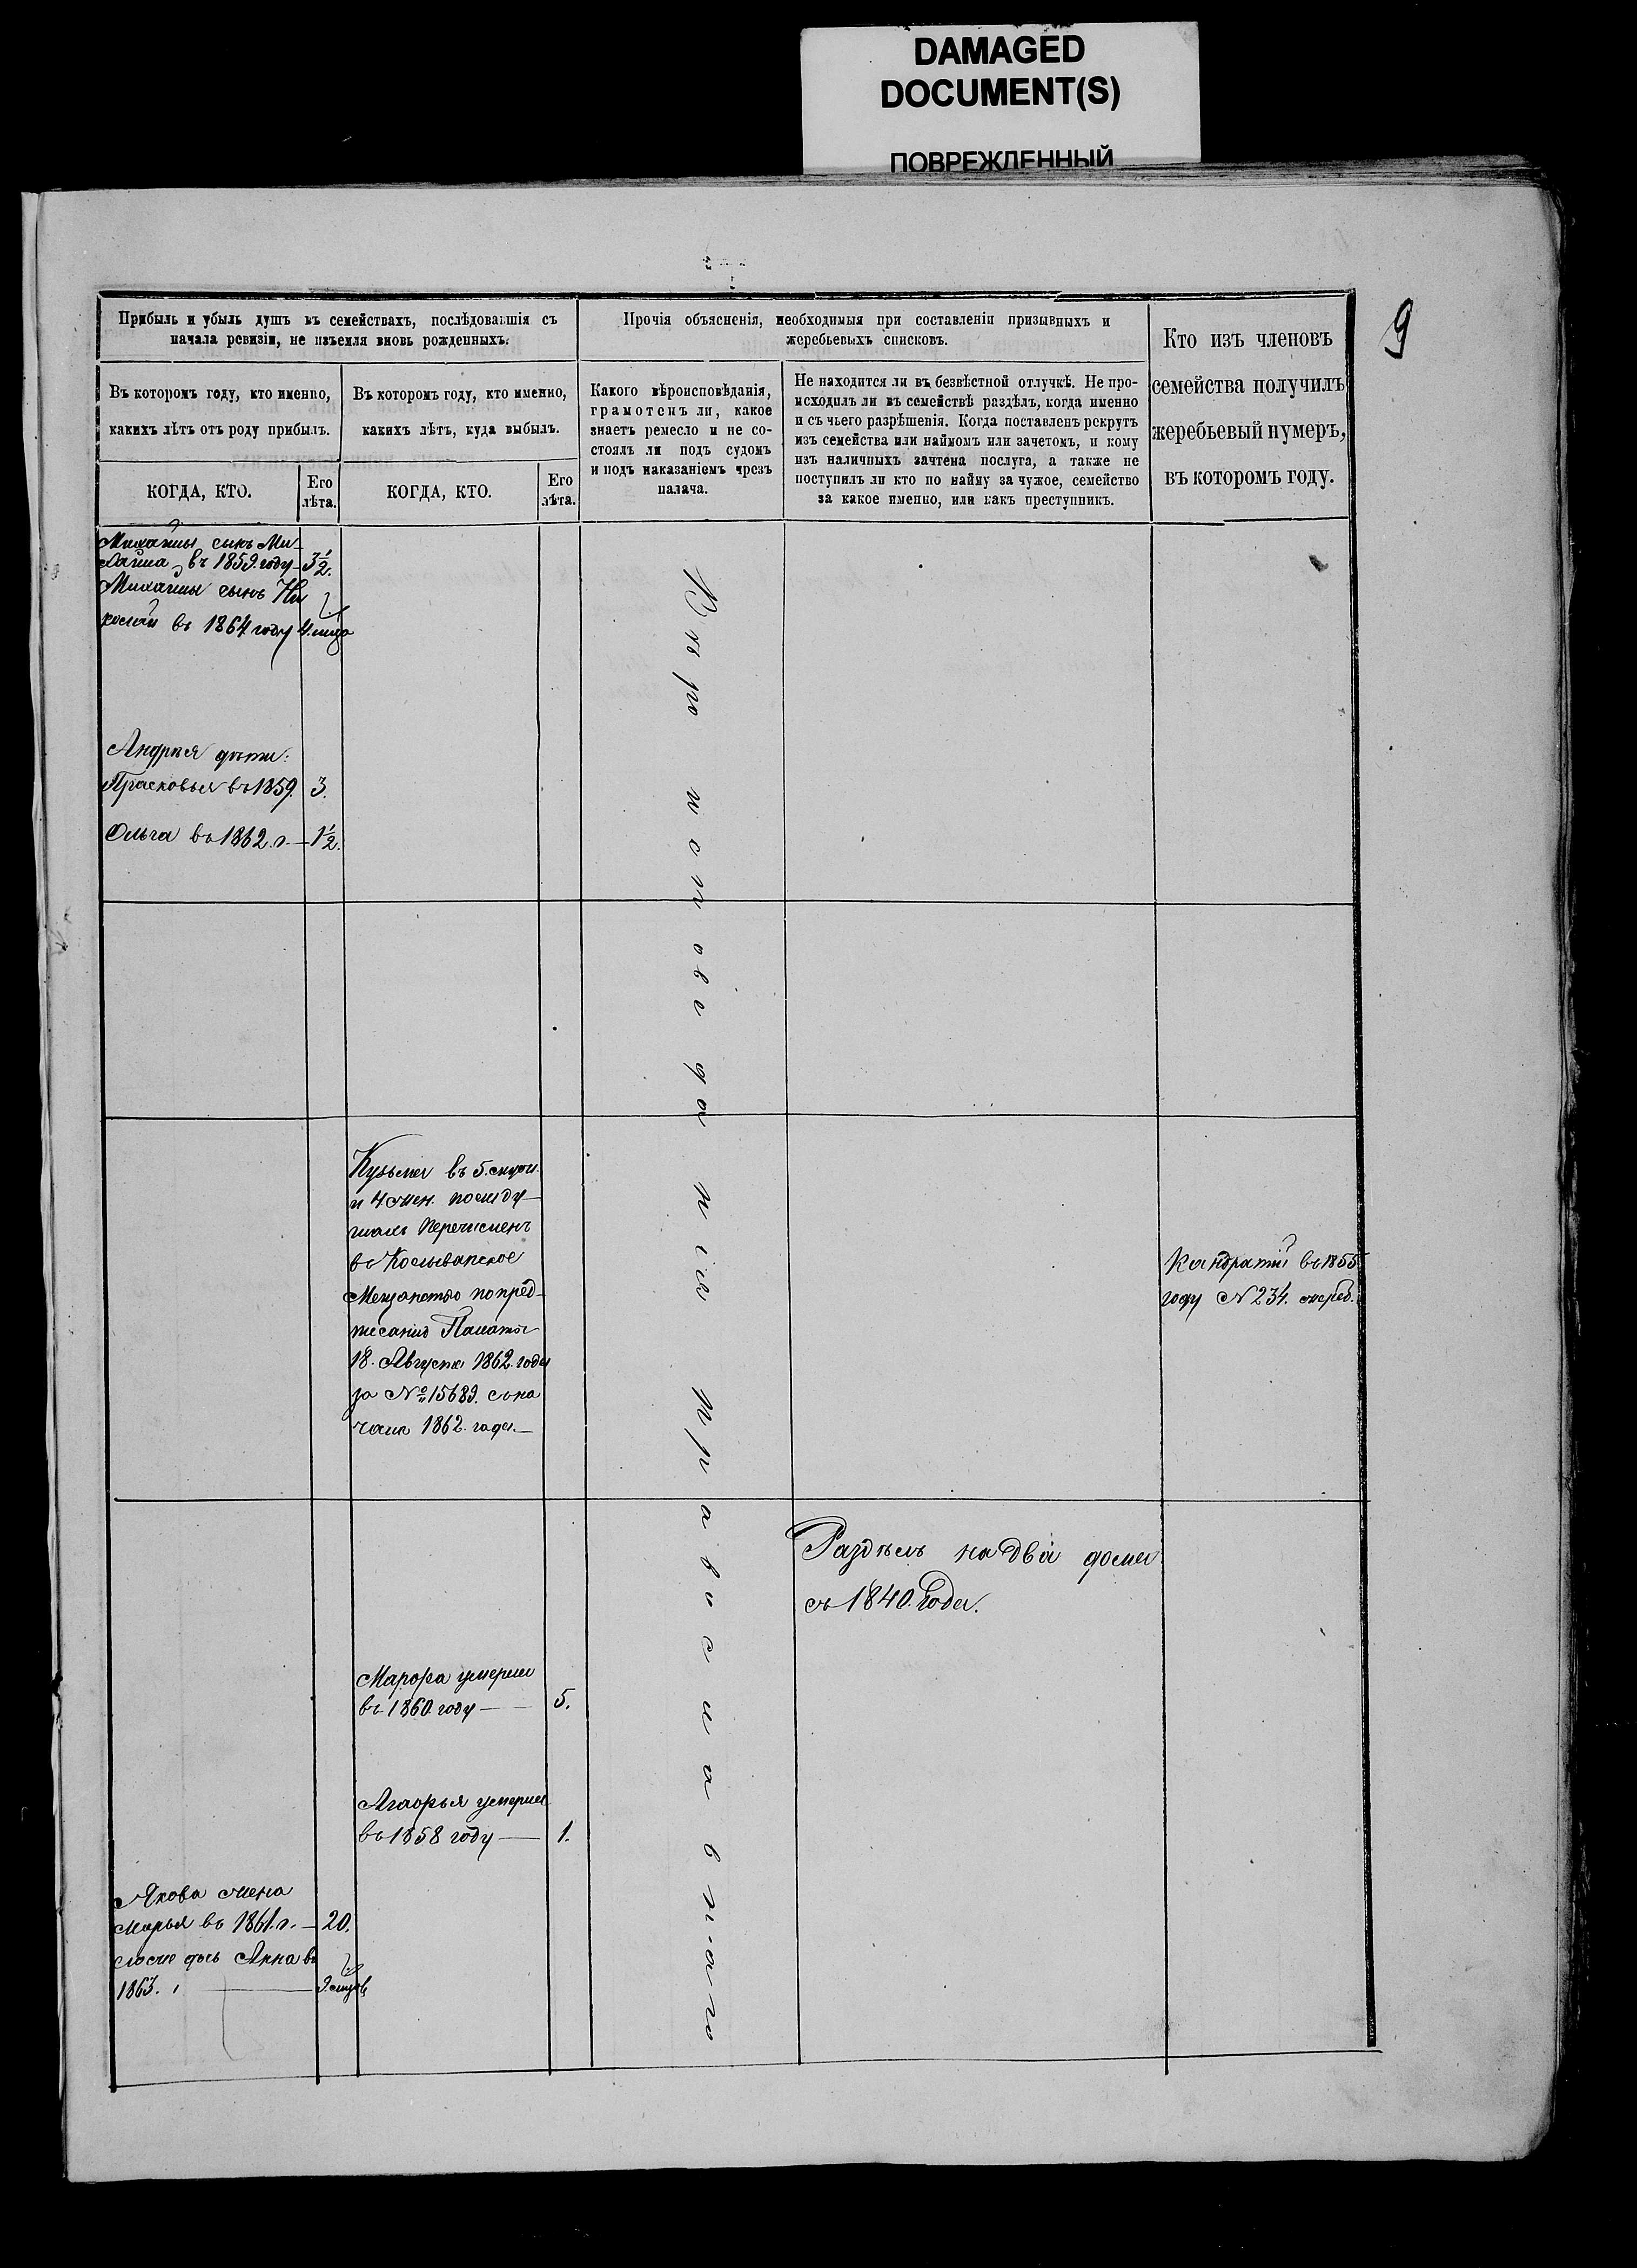 DAMAGED
DOCUMENT(S)
ПОВРЕЖДЕННЫЙ
9
Прибыль и убыль душъ въ семействахъ, послѣдовавшія съ
начала ревизіи, не изъемля вновь рожденныхъ.
Въ которомъ году, кто именно,
какихъ лѣтъ отъ роду прибылъ.
КОГДА, КТО.
Его
лѣта.
Въ которомъ году, кто именно,
какихъ лѣтъ, куда выбылъ.
КОГДА, КТО.
Его
лѣта.
Прочія объясненія, необходимыя при составленіи призывныхъ и
жеребьевыхъ списковъ.
Какого вѣроисповѣданія,
грамотенъ ли, какое
знаетъ ремесло и не со-
стоялъ ли подъ судомъ
и подъ наказаніемъ чрезъ
палача.
Не находится ли въ безвѣстной отлучкѣ. Не про-
исходилъ ли въ семействѣ раздѣлъ, когда именно
и съ чьего разрѣшенія. Когда поставленъ рекрутъ
изъ семейства или наймомъ или зачетомъ, и кому
изъ наличныхъ зачтена послуга, а также не
поступилъ ли кто по найму за чужое, семейство
за какое именно, или какъ преступникъ.
Кто изъ членовъ
семейства получилъ
жеребьевый нумеръ,
въ которомъ году.
Михайлы сынъ Ми-
хайла въ 1859. году 3½.
Михайлы сынъ Ни
колай въ 1864 году 4.
Андрея дѣти:
Прасковья въ 1859. 3.
Ольга въ 1862. г. 1½.
Вѣроисповеданія православнаго
Кузьма въ 5.
и 4
Перечисленъ
въ Колыванское
Мещанство по пред-
писанію Палаты
18. Августа 1862. года
за № 15689. съ на
чала 1862. года.
Кандратій въ 1855
году № 234.
Раздѣлъ на два дома
съ 1840. Года.
Марфа умерла
въ 1860. году 5.
Агафья умерла
въ 1858 году 1.
Якова жена
Марья въ 1861. г. 20.
дочь Анна въ
1863. 9.